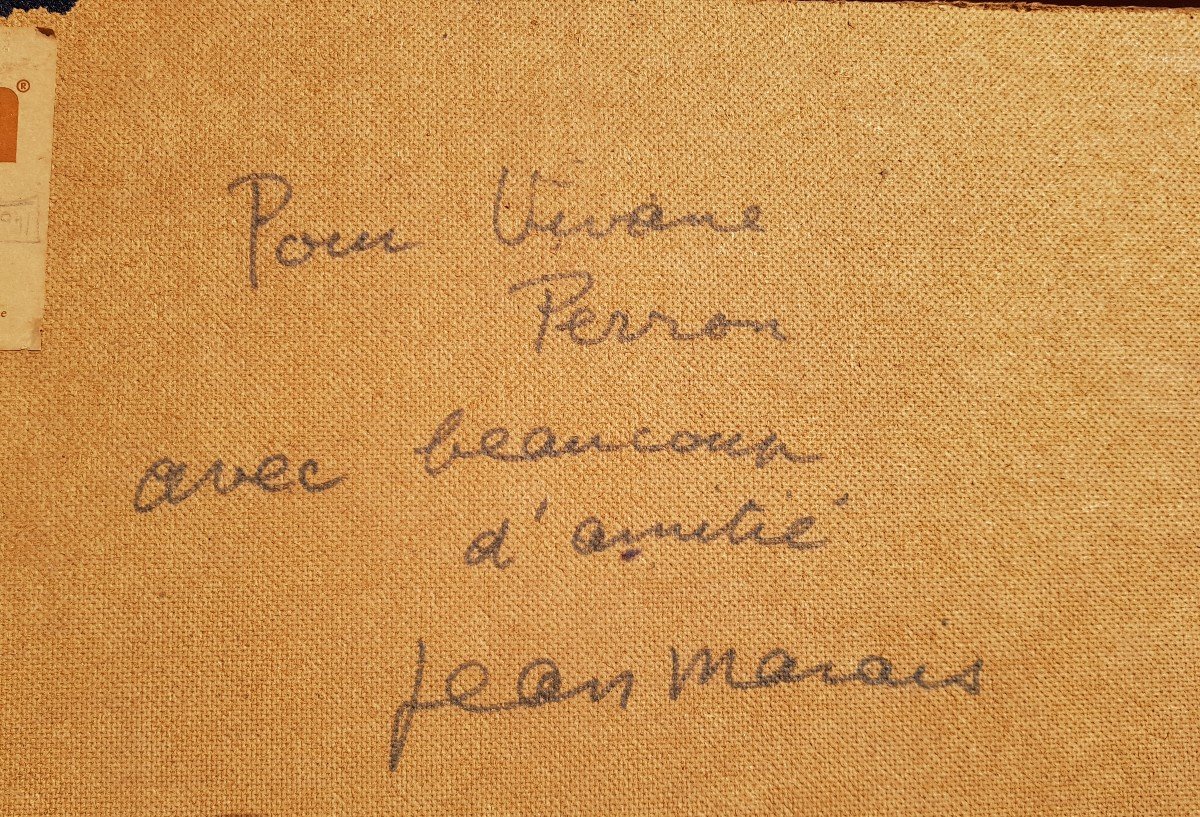 Pour Vivane
Perron
avec beaucoup
d'amitié
Jean Marais
®
e